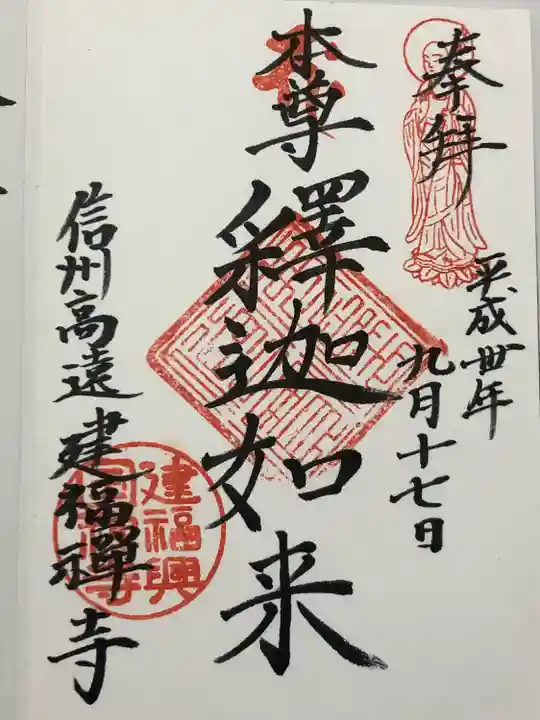 奉拝
平成卅年
九月十七日
本尊
釋迦如来
信州高遠 建福禅寺
建福興